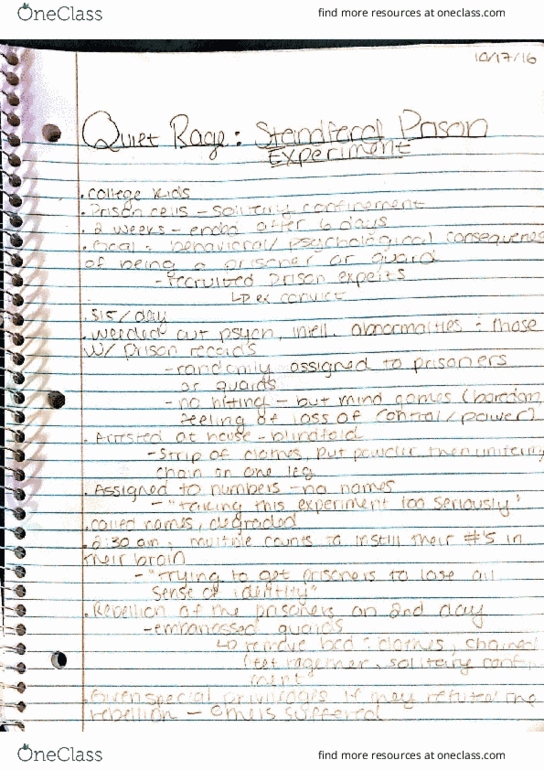 OneClass
find more resources at oneclass.com
10/17/16
Quiet Rage: Standferal Prison
Experiment
. college kids
. Prison cells - solitary confinement
. 2 weeks - ended after 6 days
. Goal: behavioral/psychological consequences
of being a prisoner or guard
- recruited prison experts
↳ ex convict
. $15/day
. weeded out psych, intell. abnormalities + those
w/ prison records
- randomly assigned to prisoners
or guards
- no hitting - but mind games (boredom,
feeling of loss of control/power)
. Arrested at house - blindfold
- strip of clothes, put powder then uniform,
chain on one leg
. Assigned to numbers - no names
- "taking this experiment too seriously"
. called names, degraded
. 2:30 am: multiple counts to instill their #'s in
their brain
- "Trying to get prisoners to lose all
sense of identity"
. Rebellion of the prisoners on 2nd day
- embarrassed guards
↳ remove bed + clothes, chained
feet together, solitary confine-
ment
. Given special privileges if they refuted the
rebellion - others suffered
OneClass
find more resources at oneclass.com